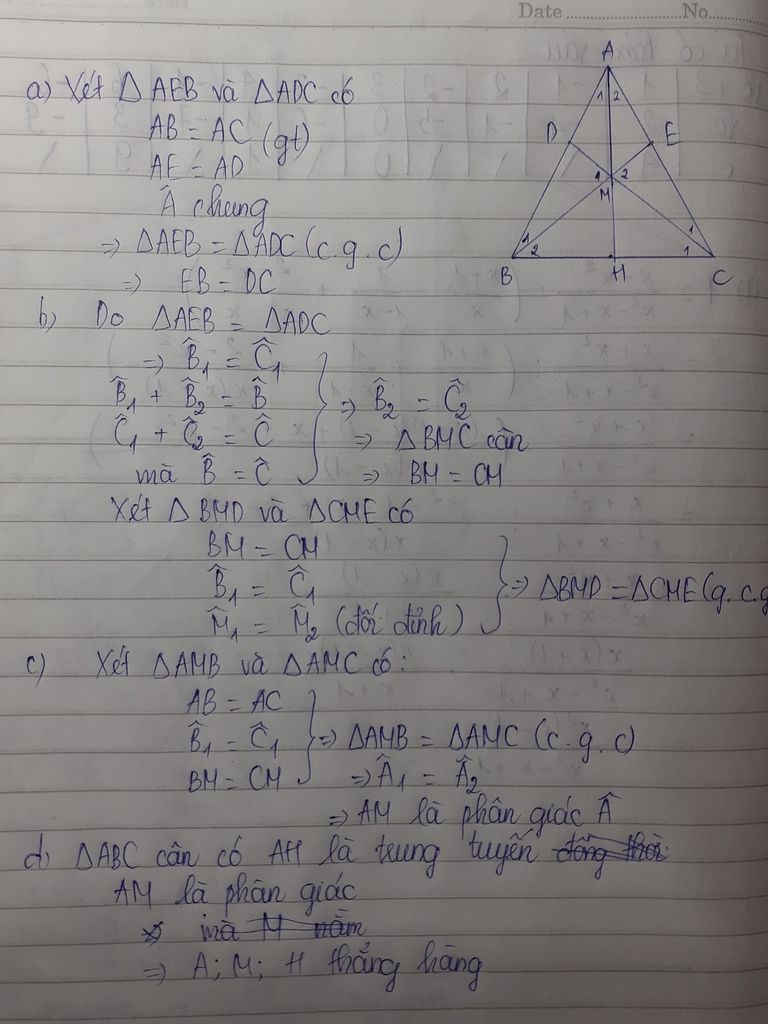 Date ........................ No............
a) Xét Δ AEB và ΔADC có
AB = AC (gt)
AE = AD
Â chung
=> ΔAEB = ΔADC (c.g.c)
=> EB = DC
A
1 2
D E
1 2
M
1 2
1
1
B H C
b) Do ΔAEB = ΔADC
=> B̂₁ = Ĉ₁
B̂₁ + B̂₂ = B̂
Ĉ₁ + Ĉ₂ = Ĉ
mà B̂ = Ĉ
=> B̂₂ = Ĉ₂
=> ΔBMC cân
=> BM = CM
Xét Δ BMD và ΔCME có
BM = CM
B̂₁ = Ĉ₁
M̂₁ = M̂₂ (đối đỉnh)
=> ΔBMD = ΔCME (g.c.g
c) Xét ΔAMB và ΔAMC có:
AB = AC
B̂₁ = Ĉ₁
BM = CM
=> ΔAMB = ΔAMC (c.g.c)
=> Â₁ = Â₂
=> AM là phân giác Â
d) ΔABC cân có AH là trung tuyến đồng thời
AM là phân giác
mà M nằm
=> A; M; H thẳng hàng